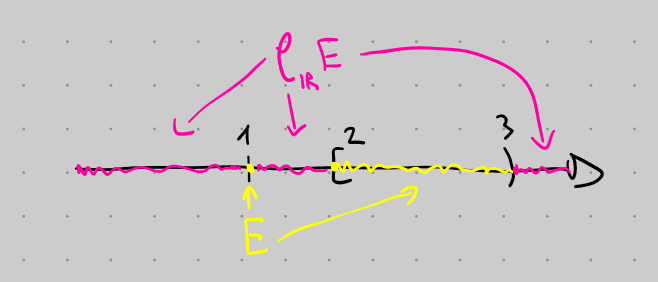 C_ℝ E
1 [ 2 3 )
E